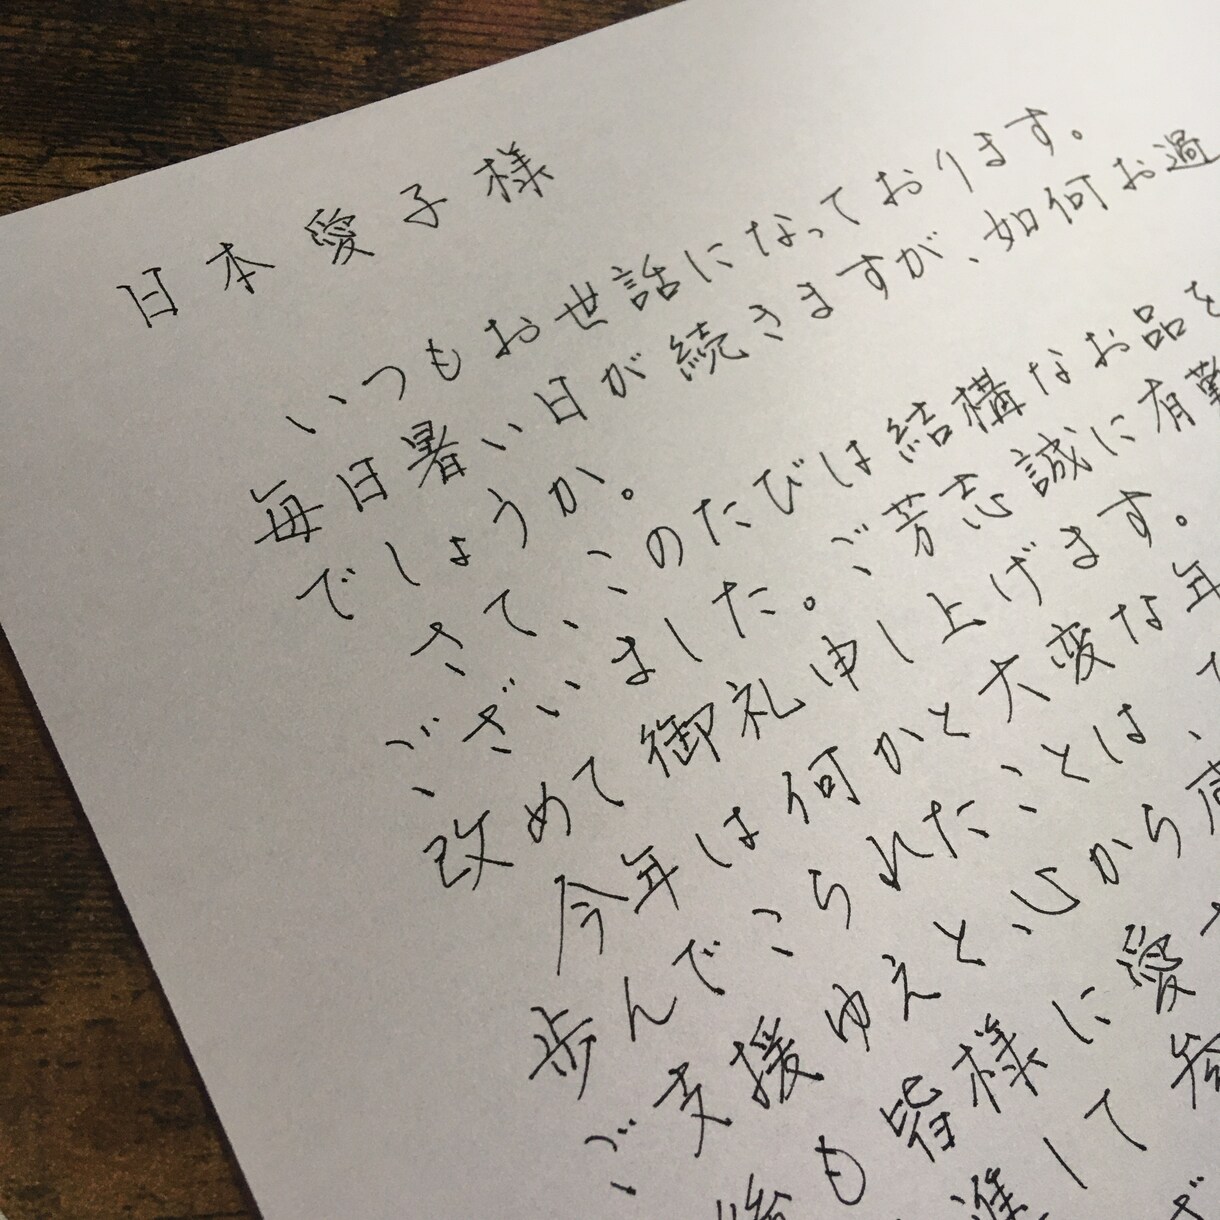 日本愛子様
いつもお世話になっております。
毎日暑い日が続きますが、如何お過
でしょうか。
さて、このたびは結構なお品を
ございました。ご芳志誠に有難
改めて御礼申し上げます。
今年は何かと大変な年
歩んでこられたことは、
ご支援ゆえと、心から感
後も皆様に愛さ
進して